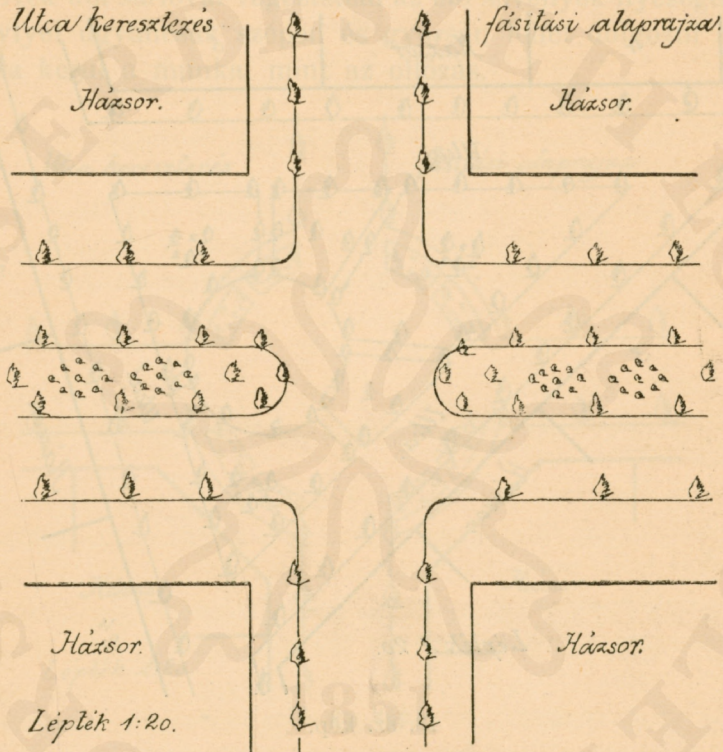 Utca keresztezés fásitási alaprajza.
Házsor. Házsor.
Házsor. Házsor.
Lépték 1:20.
ERDÉSZETI
1851